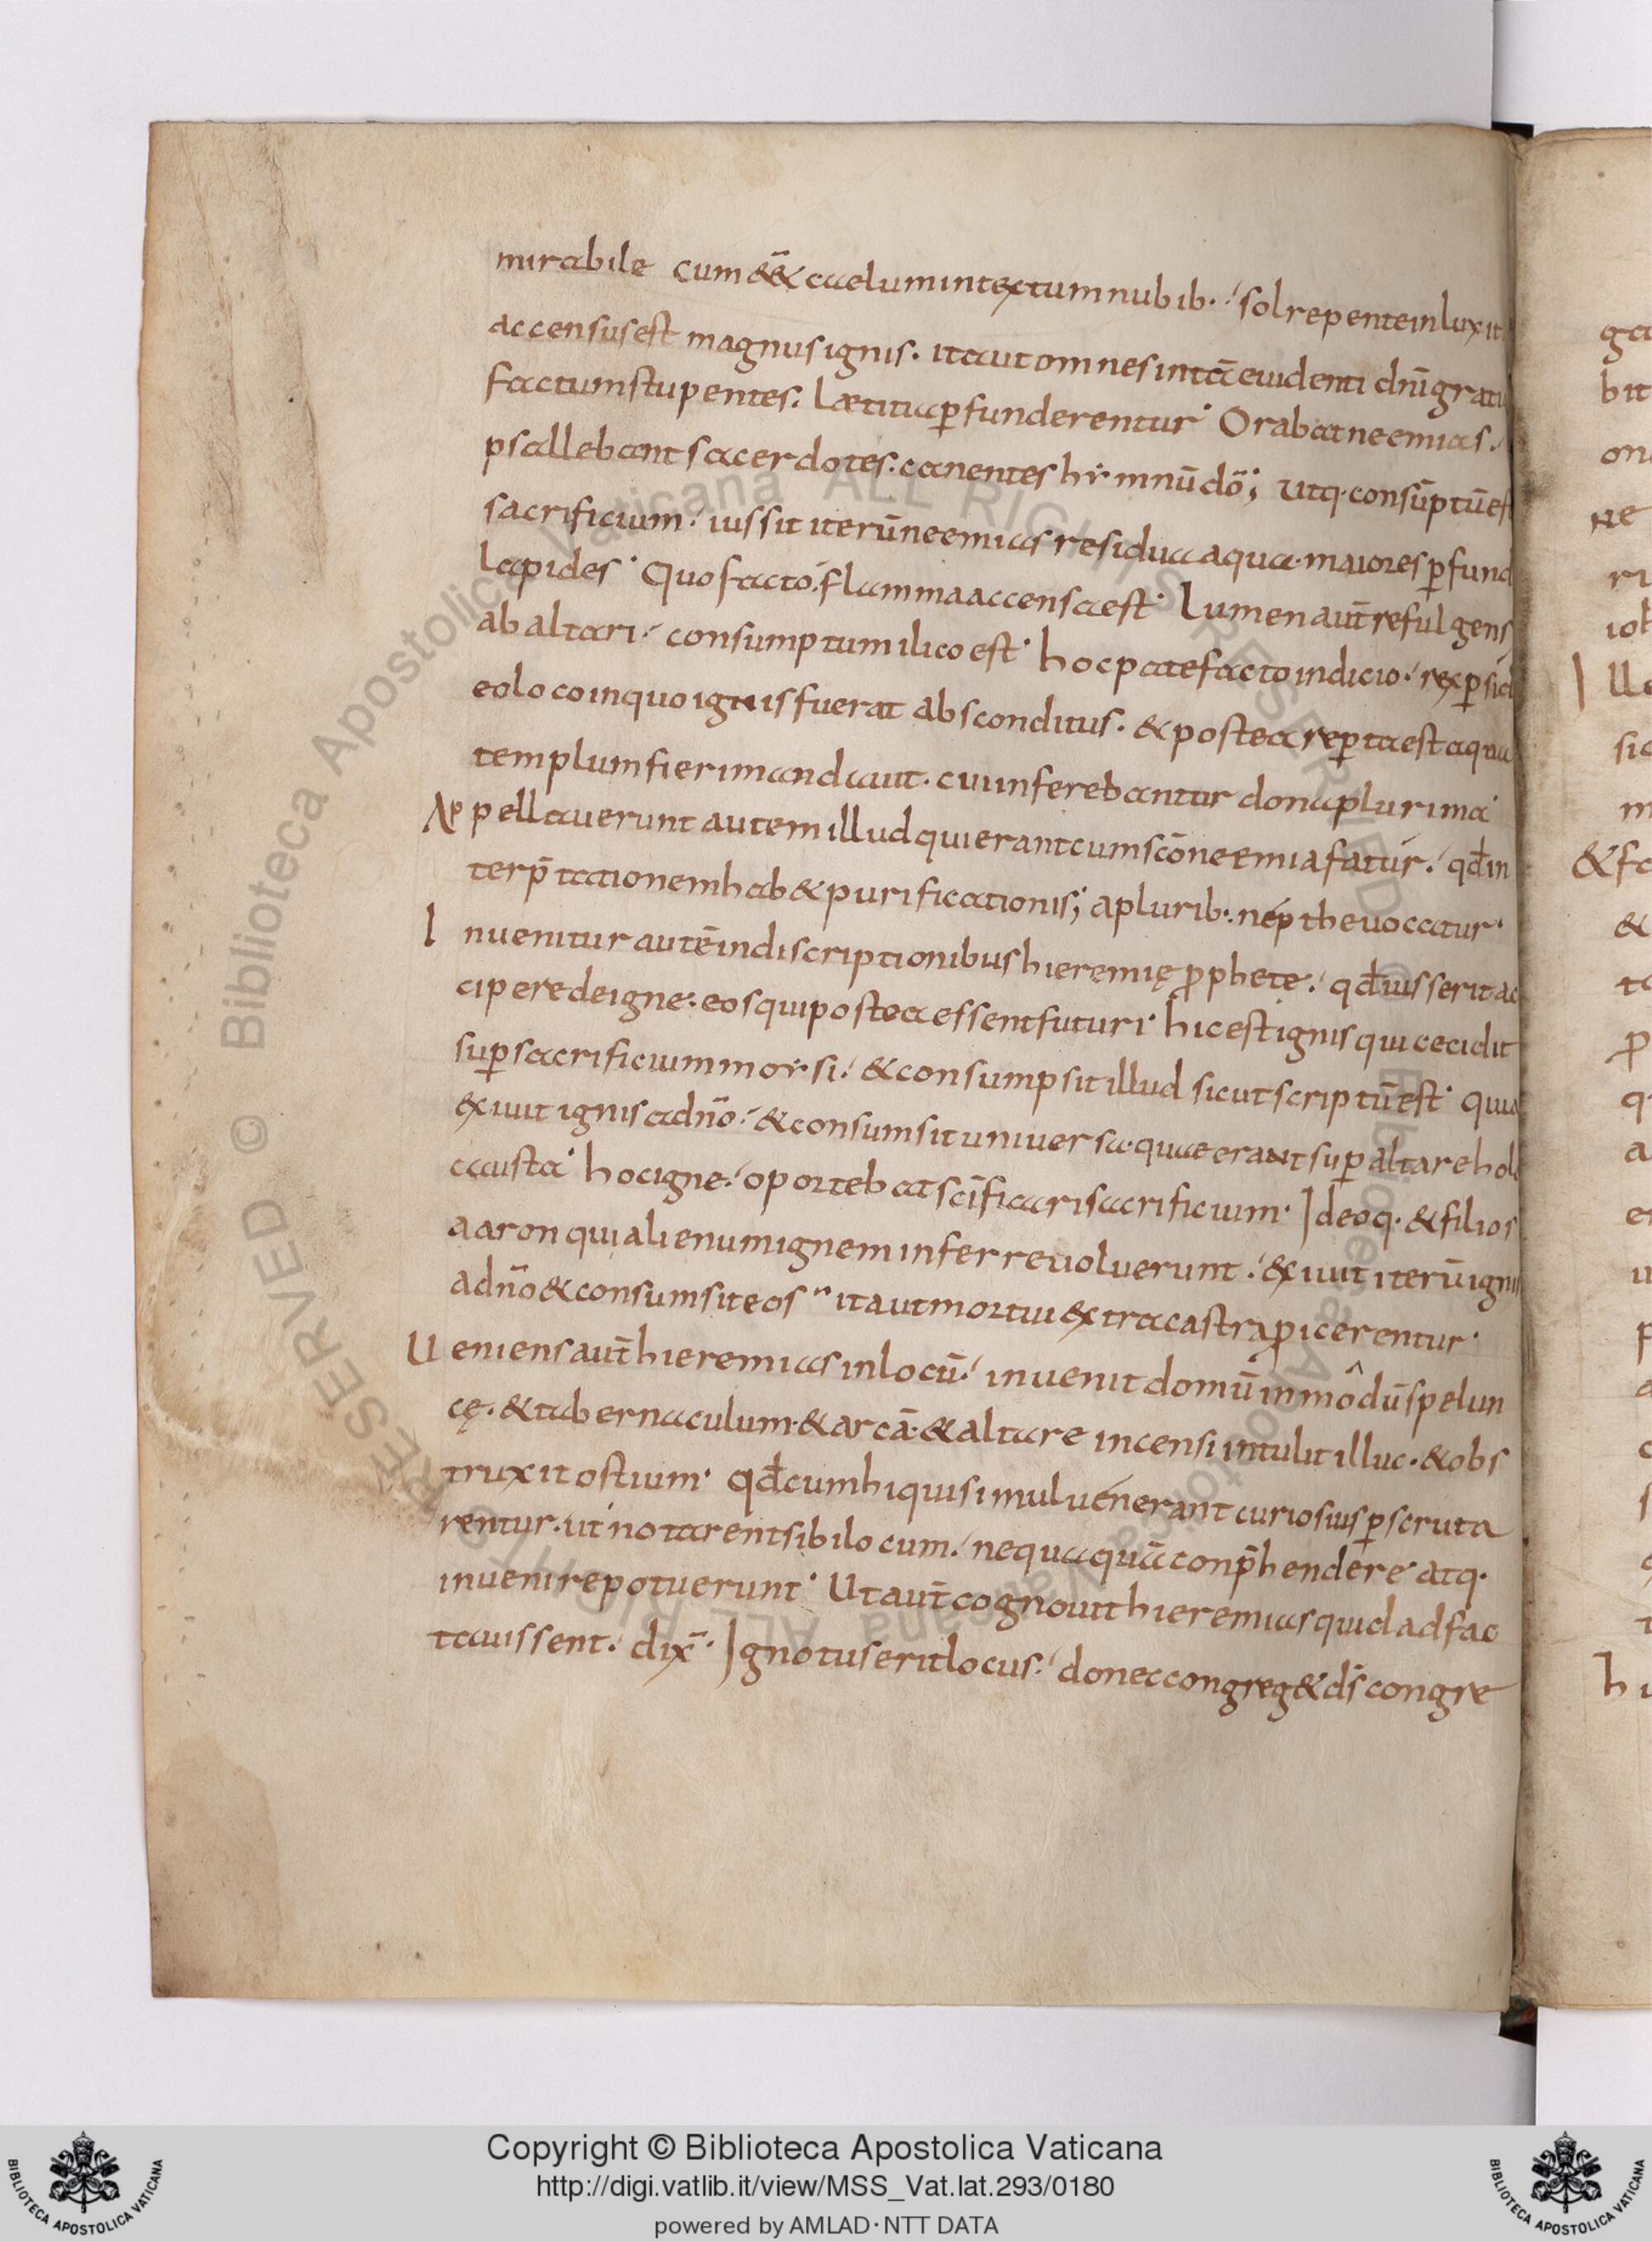 mirabile cum &&̄ caelum intectum nubib· sol repente inluxit
accensus est magnus ignis. ita ut omnes in tā euidenti dn̄i gratia
factum stupentes. Laetitia ꝑfunderentur· Orabat neemias.
psallebant sacerdotes. canentes hẏmnū dō; utq· consūptū est
sacrificium. iussit iterū neemias residua aqua maiores ꝑfund
lapides· Quo facto flamma accensa est· Lumen aut̄ refulgens
ab altari. consumptum ilico est· hoc patefacto indicio. rex ꝑsid
eo loco in quo ignis fuerat absconditus. & postea reꝑta est aqua
templum fieri mandauit. cui inferebantur dona plurima·
Appellauerunt autem illud qui erant cum scō neemia fatur. qđ in
terp̄tationem hab& purificationis; a plurib· nepthe uocatur·
Inuenitur autē in discriptionibus hieremię ꝓphete. qđ iusserit ac
cipere de igne. eos qui postea essent futuri· hic est ignis qui cecidit
suꝑ sacrificium moẏsi. & consumpsit illud sicut scriptū est· quia
exiuit ignis a dn̄o. & consumsit uniuersa quae erant suꝑ altare holo
causta· hoc igne. oportebat sc̄ificari sacrificium· Ideoq· & filios
aaron qui alienum ignem inferre uoluerunt. exiuit iterū ignis
a dn̄o & consumsit eos ita ut mortui extra castra ꝓicerentur·
Ueniens aut̄ hieremias in locū. inuenit domū in modū spelun
cę. & tabernaculum & arcā & altare incensi intulit illuc. & obs
truxit ostium· qđ cum hi qui simul uenerant curiosius ꝑscruta
rentur. ut notarent sibi locum. nequaquā conp̄hendere atq·
inuenire potuerunt· Ut aut̄ cognouit hieremias quid adfac
tauissent. dix̄· Ignotus erit locus. donec congreg& ds̄ congre
ga
bit
ne
ri
sic
m
& fa
&
Copyright © Biblioteca Apostolica Vaticana
http://digi.vatlib.it/view/MSS_Vat.lat.293/0180
powered by AMLAD·NTT DATA
BIBLIOTECA APOSTOLICA VATICANA
BIBLIOTECA APOSTOLICA VATICANA
© Biblioteca Apostolica Vaticana ALL RIGHTS RESERVED © Biblioteca Apostolica Vaticana ALL RIGHTS RESERVED